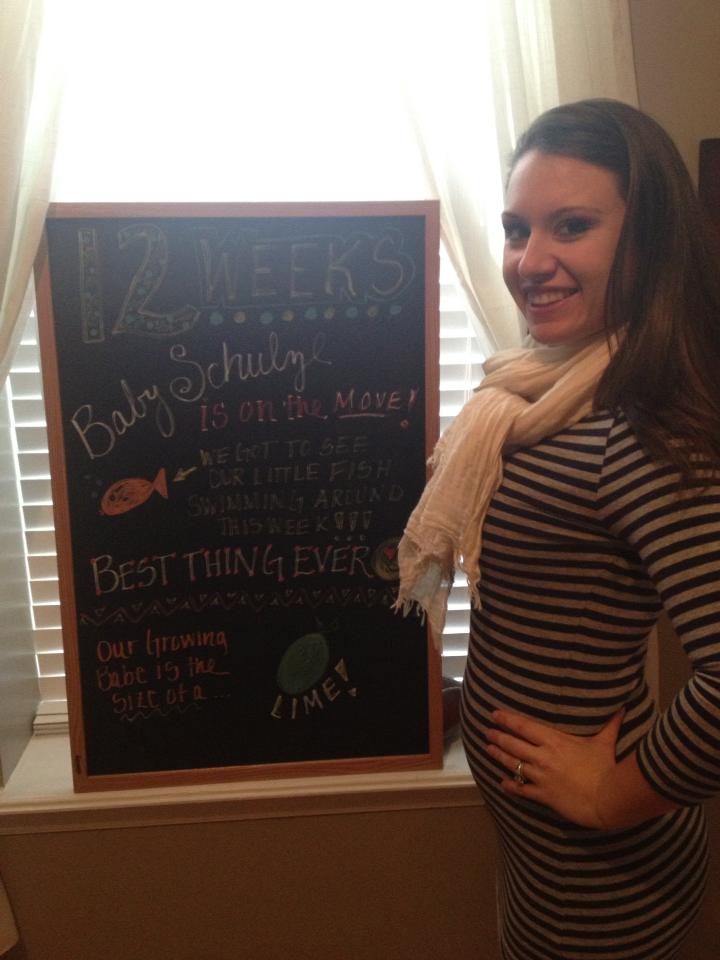 12 WEEKS
Baby Schulze
is on the MOVE!
WE GOT TO SEE
OUR LITTLE FISH
SWIMMING AROUND
THIS WEEK!!!
BEST THING EVER
OUR Growing
Babe is the
SIZE OF a ...
LIME!